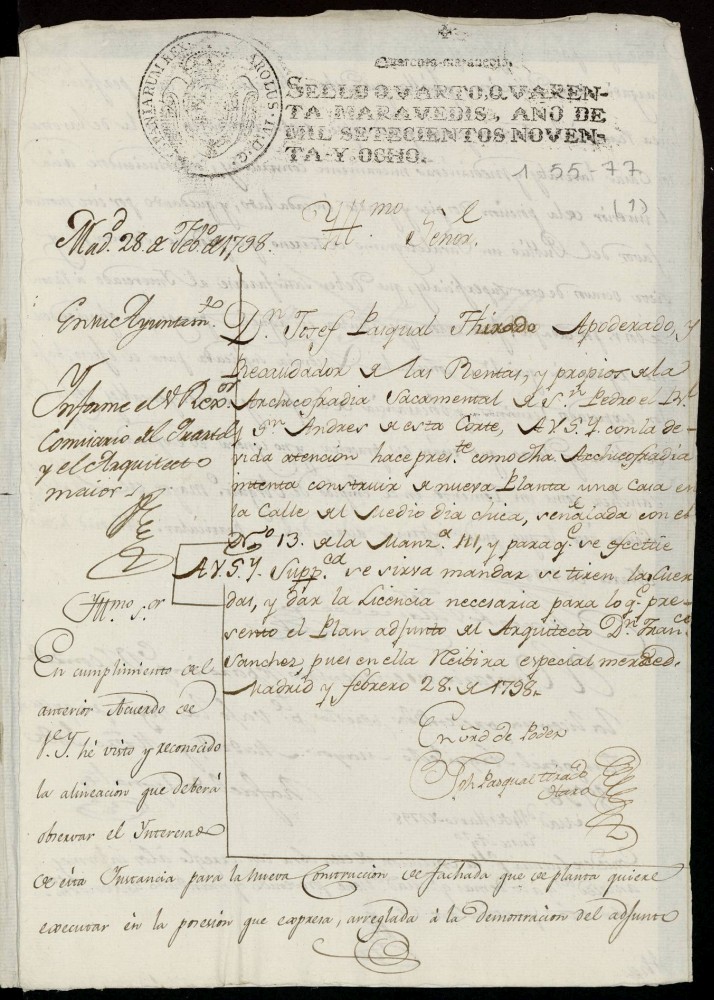 HISPANIARUM REX
CAROLUS IV D.G.
Quarenta maravedis.
SELLO QVARTO, QVAREN-
TA MARAVEDIS, AÑO DE
MIL SETECIENTOS NOVEN-
TA Y OCHO.
1-55-77
(1)
Yllmo Señor.
Madd. 28. de Febo. de 1798.
En su Ayuntamto.
Ynforme el Sr. Rexor.
Comisario del Quartel
y el Arquitecto
maior
Dn. Josef Pasqual Thirado Apoderado, y
Recaudador de las Rentas, y propios de la
Archicofradia Sacramental de Sn. Pedro el Rl.
y Sn. Andres de esta Corte, A V.S.Y. con la de-
vida atencion hace preste. como dha. Archicofradia
intenta construir de nueva Planta una Casa en
la Calle del Medio dia chica, señalada con el
No. 13. de la Manza. 111, y para qe. se efectúe
A V.S.Y. Suppca. se sirva mandar se tiren las Cuer-
das, y dar la Licencia necesaria para lo qe. pre-
sento el Plan adjunto del Arquitecto Dn. Franco.
Sanchez, pues en ella Recibira especial merced.
Madrid y febrero 28. de 1798.
En vd. de Poder
Jph. Pasqual tirado
Haro
Yllmo. Sor.
En cumplimiento del
anterior Acuerdo de
V.S.Y. hé visto y reconocido
la alineacion que deberá
observar el Ynteresado
de esta Instancia para la nueva Construccion de fachada que de planta quiere
executar en la posesion que expresa, arreglada á la demostracion del adjunto